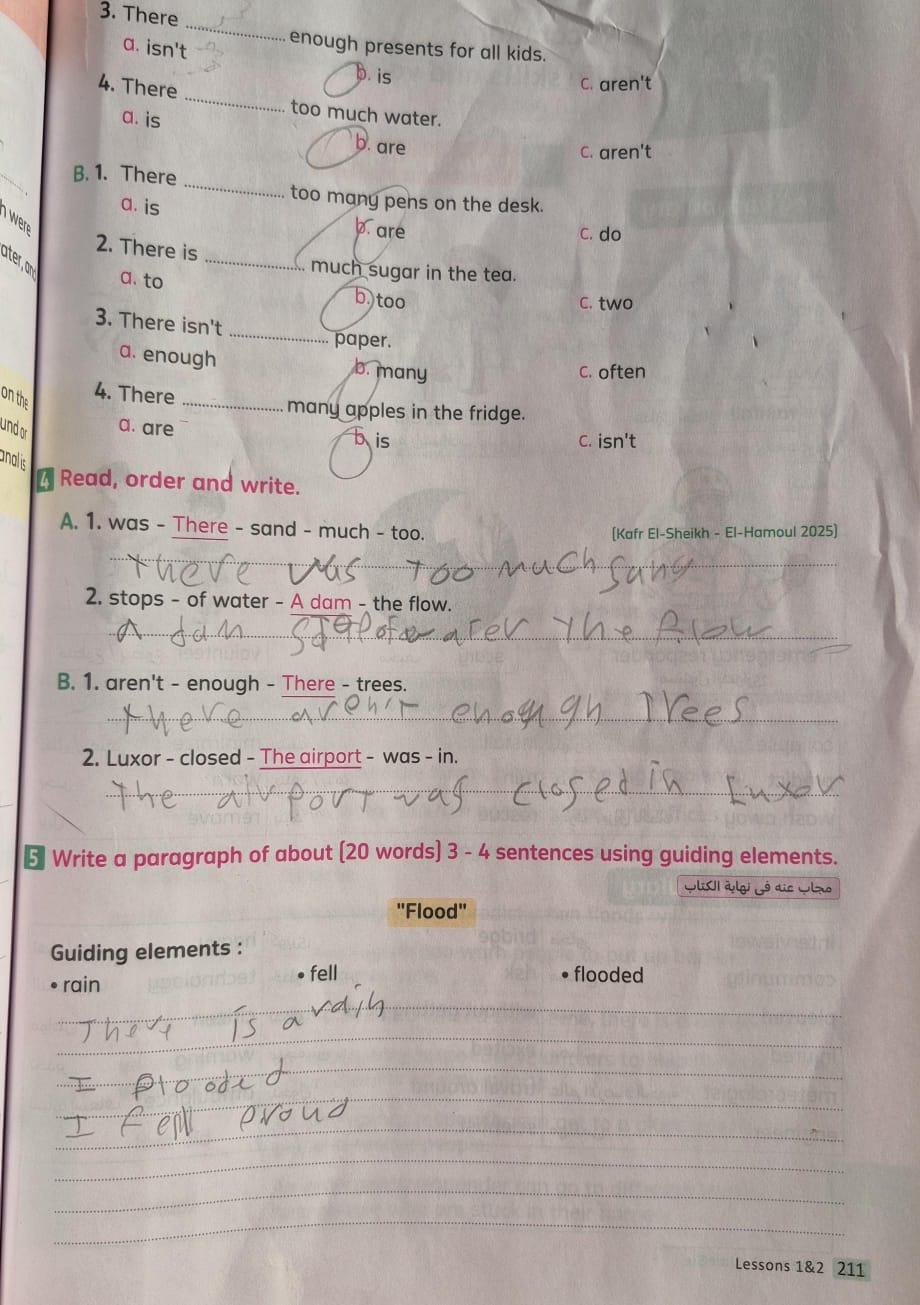 3. There .................... enough presents for all kids.
a. isn't b. is c. aren't
4. There .................... too much water.
a. is b. are c. aren't
B. 1. There .................... too many pens on the desk.
a. is b. are c. do
2. There is .................... much sugar in the tea.
a. to b. too c. two
3. There isn't .................... paper.
a. enough b. many c. often
4. There .................... many apples in the fridge.
a. are b. is c. isn't
h were
ater, and
on the
und or
anal is
4 Read, order and write.
A. 1. was - There - sand - much - too. (Kafr El-Sheikh - El-Hamoul 2025)
There was too much sand
2. stops - of water - A dam - the flow.
A dam the flow
B. 1. aren't - enough - There - trees.
There aren't enough Trees
2. Luxor - closed - The airport - was - in.
The airport was closed in Luxor
5 Write a paragraph of about (20 words) 3 - 4 sentences using guiding elements.
مجاب عنه فى نهاية الكتاب
"Flood"
Guiding elements :
• rain • fell • flooded
There is a rain
I plooded
I fell proud
Lessons 1&2 211